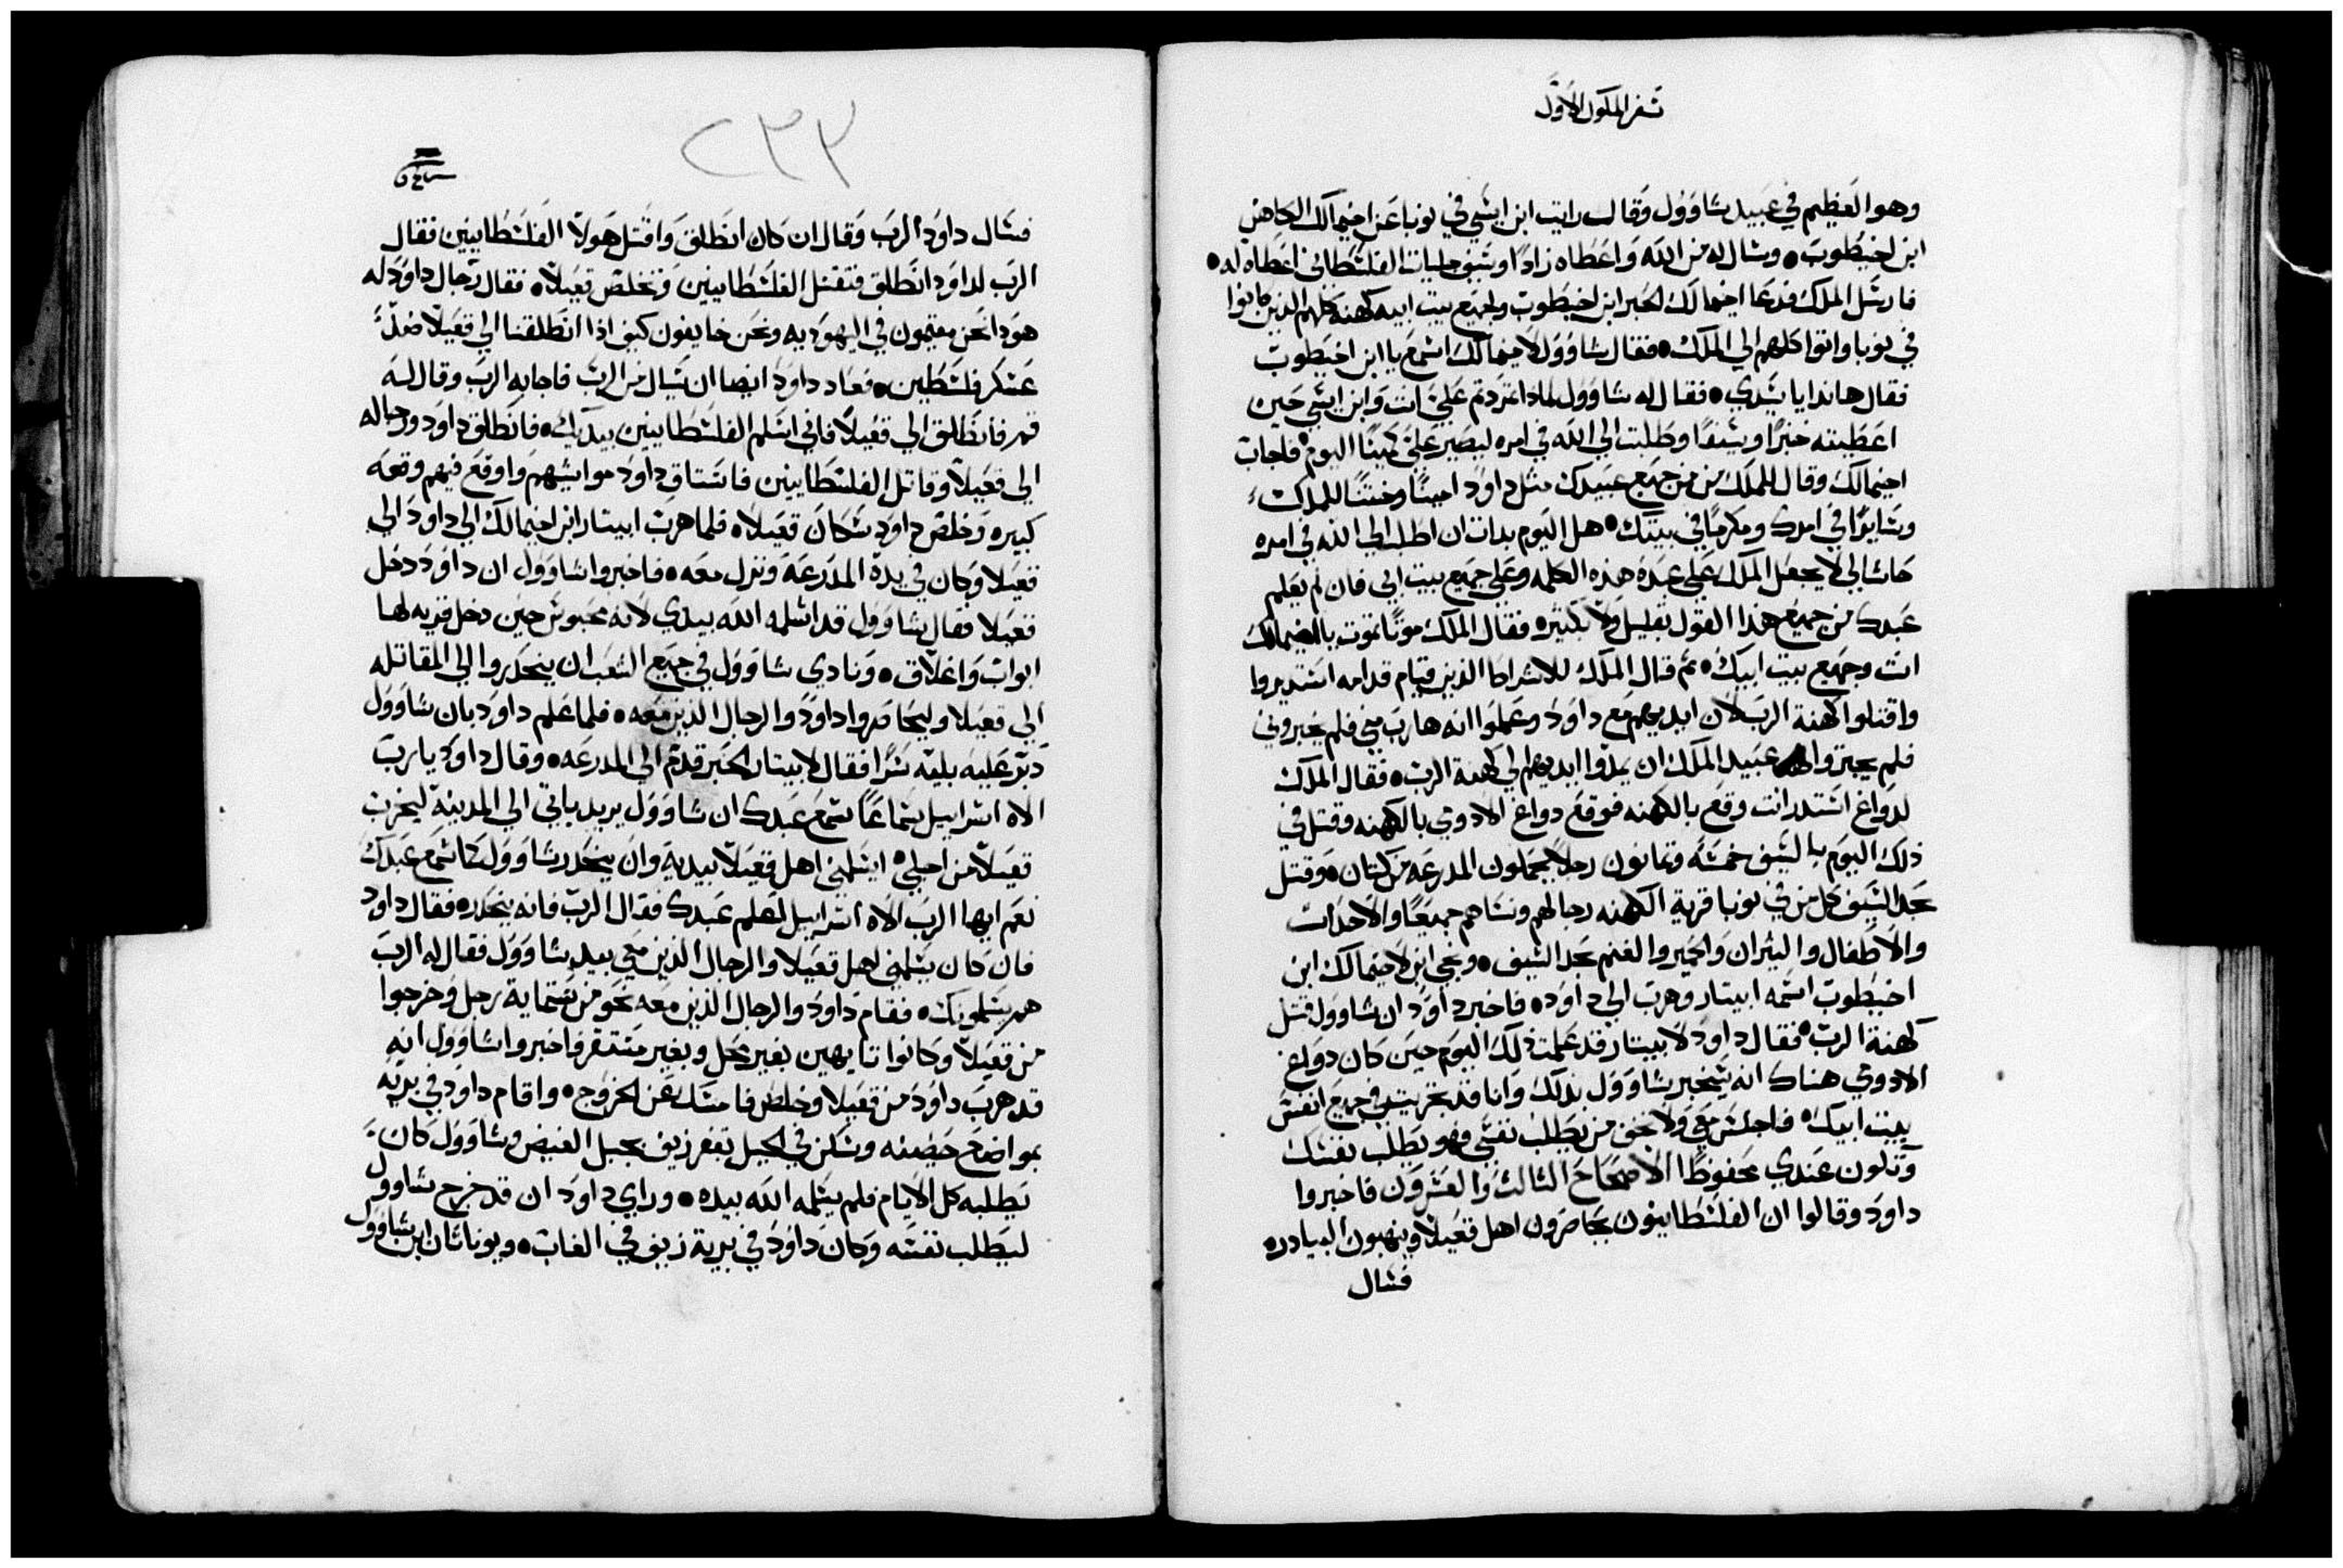 سفر الملوك الاول
وهو العظيم في عبيد شاوول وقال رايت ابن ايشي في نوبا عند اخيمالك الكاهن
ابن اخيطوب • وسال له من الله واعطاه زادا وسيف جليات الفلشطاني اعطاه له •
فارسل الملك فدعا اخيمالك الحبر ابن اخيطوب ولجميع بيت ابيه كهنه كلهم الذين كانوا
في نوبا واتوا كلهم الي الملك • فقال شاوول لاخيمالك اسمع يا ابن اخيطوب
فقال هاندا يا سيدي • فقال له شاوول لماذا تمردتم علي انت وابن ايشي حين
اعطيته خبزا وسيفا وطلبت الي الله في امره ليصير علي كمينا اليوم • فاجاب
اخيمالك وقال للملك من من جميع عبيدك مثل داود امينا وختنا للملك
وسايرا في امرك ومكرما في بيتك • هل اليوم بدات ان اطلب الي الله في امره
حاشا لي لا يجعل الملك علي عبده هذه الكلمه وعلي جميع بيت ابي فان لم يعلم
عبدك من جميع هذا القول بقليل ولا بكثيره فقال الملك موتا تموت يا اخيمالك
انت وجميع بيت ابيك • ثم قال الملك للاشراط الذين قيام قدامه استديروا
واقتلوا كهنة الرب لان ايديهم مع داود وعملوا انه هارب مني فلم يخبروني
فلم يجتروا عبيد الملك ان يمدوا ايديهم الي كهنة الرب • فقال الملك
لدواغ استدر انت وقع بالكهنه فوقع دواغ الادومي بالكهنه وقتل في
ذلك اليوم بالسيف خمسه وثمانون رجلا يحملون المدرعه من كتان • وقتل
بحد السيف كل من في نوبا قرية الكهنه رجالهم ونساهم جميعا والاحداث
والاطفال والثيران والحمير والغنم بحد السيف • ونجي ابن لاخيمالك ابن
اخيطوب اسمه ابيتار وهرب الي داود • فاخبر داود ان شاوول قتل
كهنة الرب • فقال داود لابيتار قد علمت ذلك اليوم حين كان دواغ
الادومي هناك انه سيخبر شاوول بذلك وانا قد في جميع انفس
بيت ابيك • فاجلس معي ولا تخف من يطلب نفسي فهو يطلب نفسك
وتكون عندي محفوظا الاصحاح الثالث والعشرون فاخبروا
داود وقالوا ان الفلشطانيون يحاصرون اهل قعيلا وينهبون البيادر •
فسال
٢٣٣
فسال داود الرب وقال ان كان انطلق واقتل هولا الفلشطانيين فقال
الرب لداود انطلق فتقتل الفلشطانيين وتخلص قعيلا • فقال رجال داود له
هودا نحن مقيمون في اليهوديه ونحن خايفون كيف اذا انطلقنا الي قعيلا ضد
عسكر فلسطين • فعاد داود ايضا ان يسال من الرب فاجابه الرب وقال له
قم فانطلق الي قعيلا فاني اسلم الفلشطانيين بيديك • فانطلق داود ورجاله
الي قعيلا وقاتل الفلشطانيين فاستاق داود مواشيهم واوقع فيهم وقعه
كبيره وخلص داود سكان قعيلا • فلما هرب ابيتار ابن اخيمالك الي داود الي
قعيلا وكان في يده المدرعة ونزل معه • فاخبروا شاوول ان داود دخل
قعيلا فقال شاوول قد اسلمه الله بيدي لانه محبوس حين دخل قريه لها
ابواب واغلاق • ونادي شاوول في جميع الشعب ان ينحدروا الي المقاتله
الي قعيلا وليحاصروا داود والرجال الذين معه • فلما علم داود بان شاوول
دبر عليه بليه سرا فقال لابيتار الحبر قدم الي المدرعه • وقال داود يا رب
الاه اسرابيل سماعا سمع عبدك ان شاوول يريد ياتي الي المدينة ليخرب
قعيلا من اجلي • ايسلمني اهل قعيلا بيديه وان ينحدر شاوول كما سمع عبدك
نعم ايها الرب الاه اسرابيل اعلم عبدك فقال الرب فانه ينحدر • فقال داود
فان كان يسلمني اهل قعيلا والرجال الذين معي بيد شاوول فقال له الرب
هم يسلمونك • فقام داود والرجال الذين معه نحو من ستماية رجل وخرجوا
من قعيلا وكانوا تايهين بغير محل وبغير مستقر فاخبروا شاوول انه
قد هرب داود من قعيلا وخلص فامسك عن الخروج • واقام داود في بريه
بمواضع حصينه وسكن في الجبل بقفر زيف بجبل الغيض وشاوول كان
يطلبه كل الايام فلم يسلمه الله بيده • وراي داود ان قد خرج شاوول
ليطلب نفسه وكان داود في برية زيف في الغاب • ويوناثان ابن شاوول